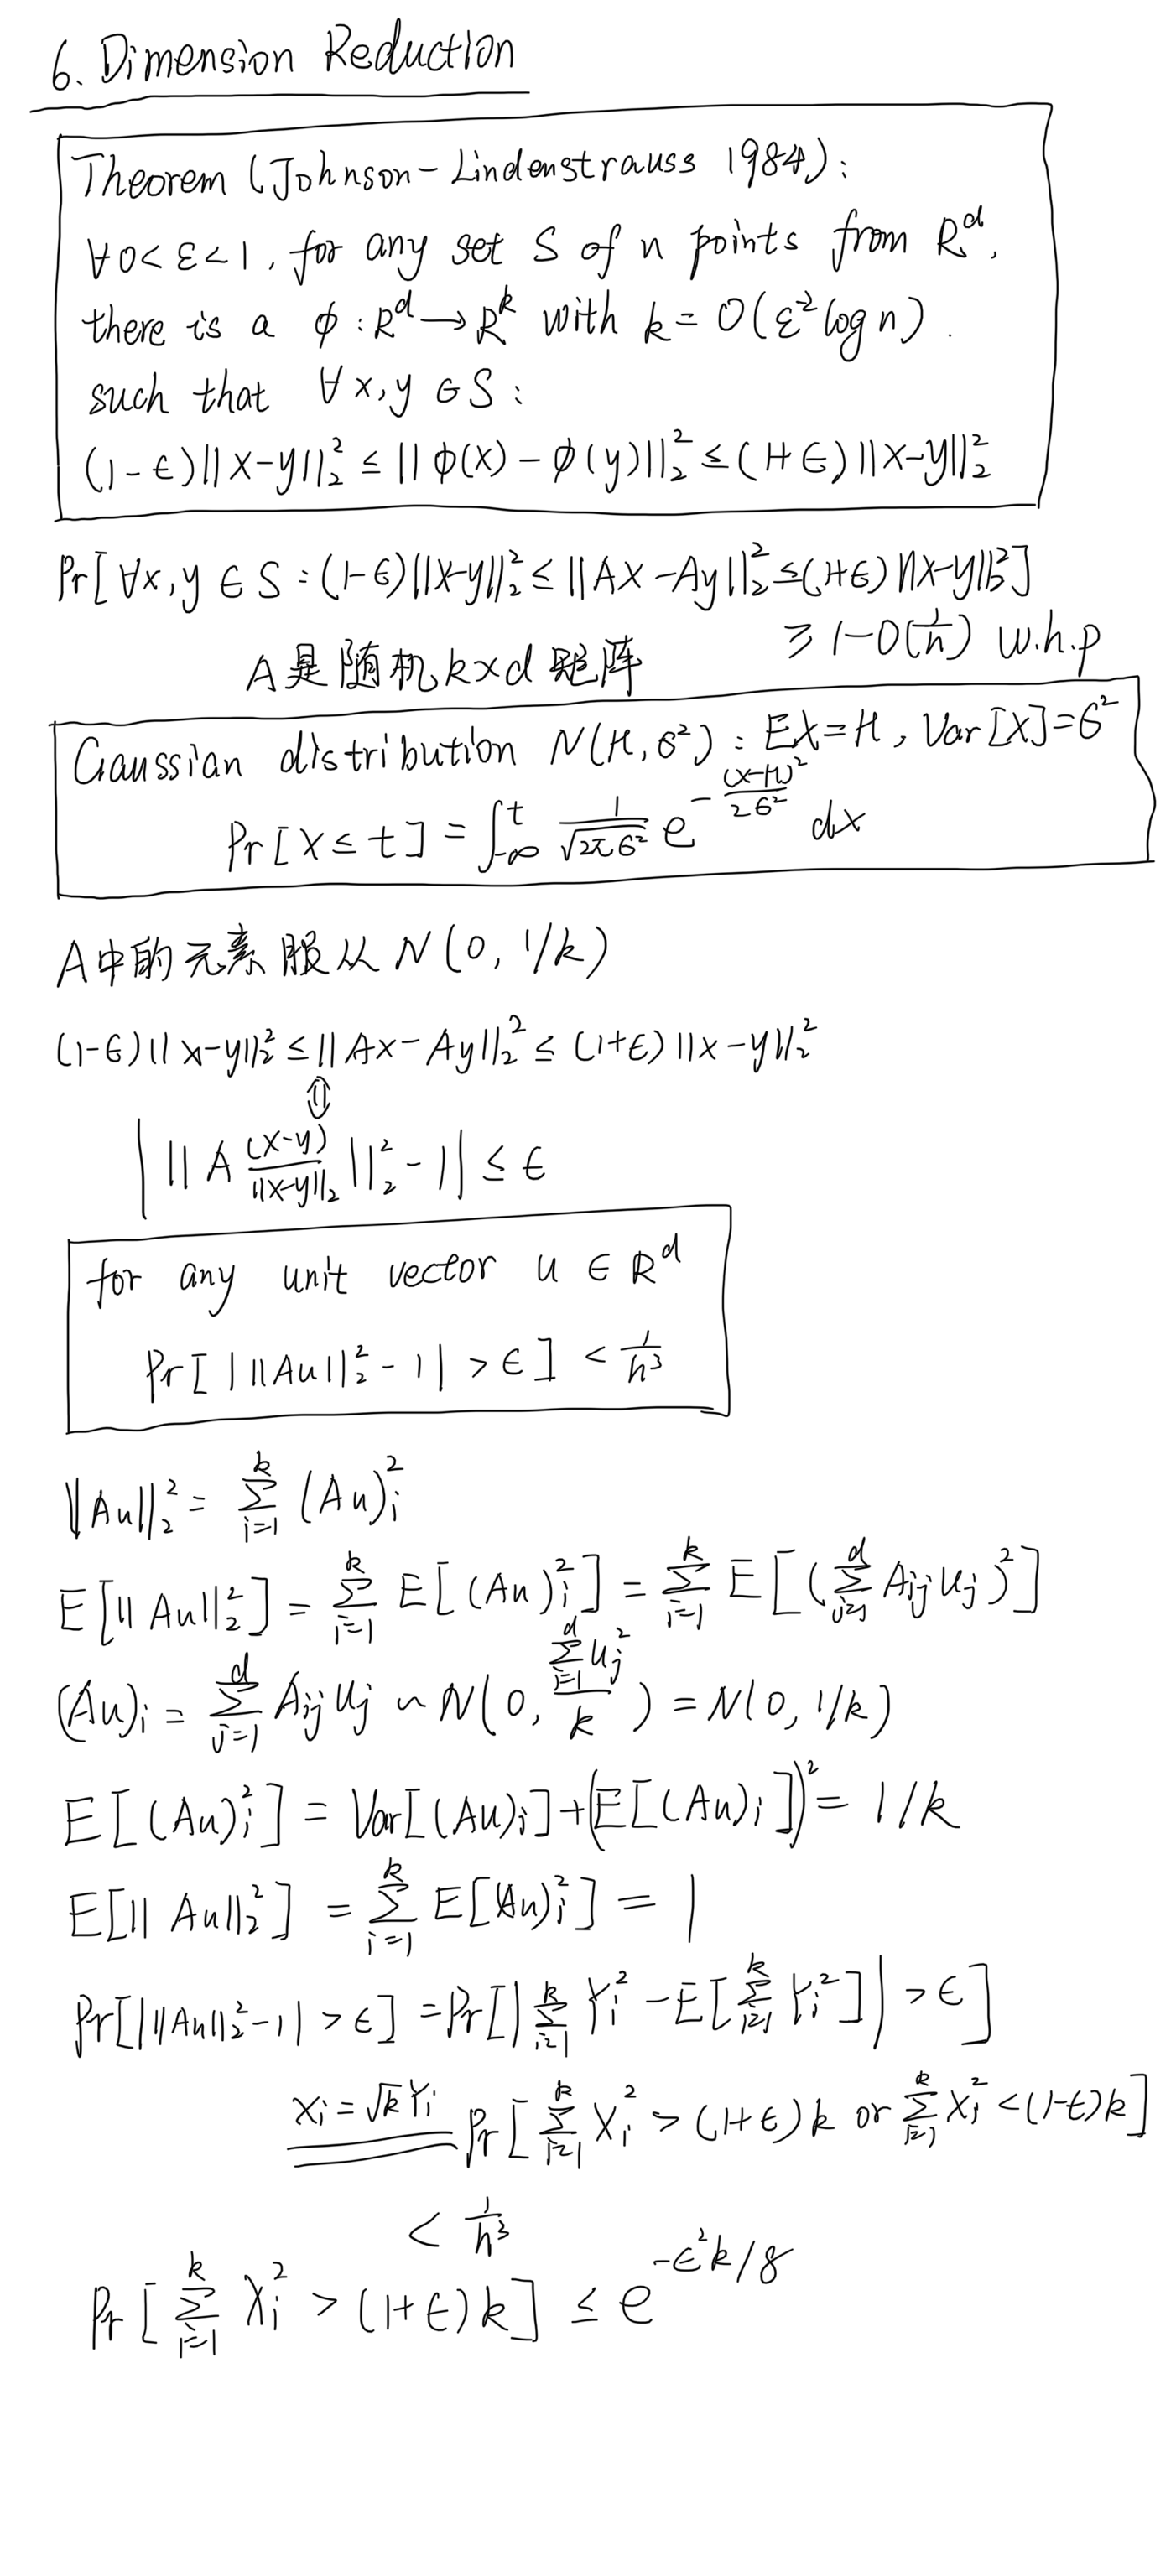 6. Dimension Reduction
Theorem (Johnson-Lindenstrauss 1984):
∀ 0 < ε < 1, for any set S of n points from R^d,
there is a ϕ : R^d → R^k with k = O(ε^-2 log n).
such that ∀ x, y ∈ S :
(1-ϵ)||x-y||_2^2 ≤ ||ϕ(x) - ϕ(y)||_2^2 ≤ (1+ϵ)||x-y||_2^2
Pr[∀x, y ∈ S : (1-ϵ)||x-y||_2^2 ≤ ||Ax-Ay||_2^2 ≤ (1+ϵ)||x-y||_2^2]
≥ 1-O(1/n) w.h.p
A是随机k×d矩阵
Gaussian distribution N(μ, σ^2) : EX=μ, Var[X]=σ^2
Pr[X ≤ t] = ∫_{-∞}^t 1/√(2πσ^2) e^{-(x-μ)^2/2σ^2} dx
A中的元素服从N(0, 1/k)
(1-ϵ)||x-y||_2^2 ≤ ||Ax-Ay||_2^2 ≤ (1+ϵ)||x-y||_2^2
⇕
| ||A (x-y)/||x-y||_2 ||_2^2 - 1| ≤ ϵ
for any unit vector u ∈ R^d
Pr[ | ||Au||_2^2 - 1| > ϵ ] < 1/n^3
||Au||_2^2 = ∑_{i=1}^k (Au)_i^2
E[||Au||_2^2] = ∑_{i=1}^k E[(Au)_i^2] = ∑_{i=1}^k E[(∑_{j=1}^d A_ij u_j)^2]
(Au)_i = ∑_{j=1}^d A_ij u_j ~ N(0, ∑_{i=1}^d u_j^2 / k) = N(0, 1/k)
E[(Au)_i^2] = Var[(Au)_i] + (E[(Au)_i])^2 = 1/k
E[||Au||_2^2] = ∑_{i=1}^k E[(Au)_i^2] = 1
Pr[| ||Au||_2^2 - 1| > ϵ] = Pr[|∑_{i=1}^k Y_i^2 - E[∑_{i=1}^k Y_i^2]| > ϵ]
X_i = √k Y_i Pr[∑_{i=1}^k X_i^2 > (1+ϵ)k or ∑_{i=1}^k X_i^2 < (1-ϵ)k]
< 1/n^3
Pr[∑_{i=1}^k X_i^2 > (1+ϵ)k] ≤ e^{-ϵ^2 k/8}